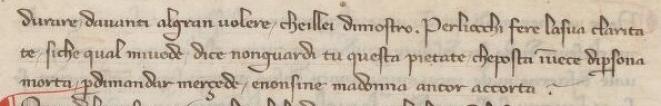 durare / davanti algran volere / cheillei dimostro. Perliocchi fere lasua clarita
te / siche qual mivede / dice nonguardi tu questa pietate / cheposta īvece dipsona
morta / pdimandar merçede / enonsine madonna ancor accorta.